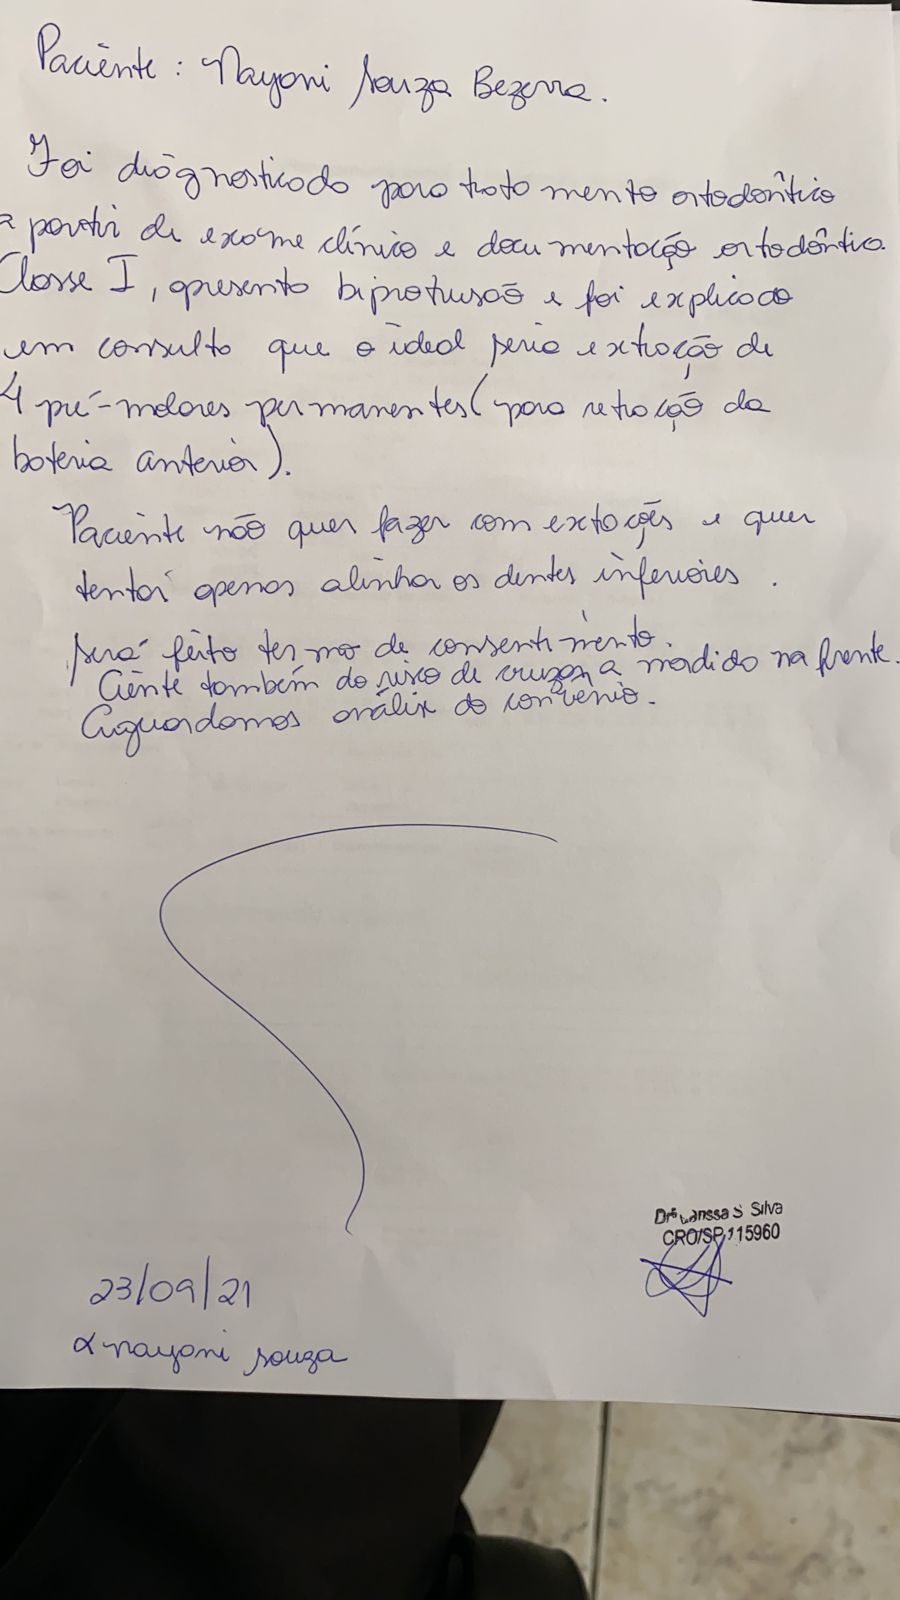 Paciente : Nayoni Souza Bezerra.
Foi diagnosticado para tratamento ortodôntico
a partir de exame clínico e documentação ortodôntica.
Classe I, apresenta biprotusão e foi explicado
em consulta que o ideal seria extração de
4 pré-molares permanentes (para retração da
bateria anterior).
Paciente não quer fazer com extações e quer
tentar apenas alinhar os dentes inferiores.
Será feito termo de consentimento.
Ciente também do risco de cruzar a mordida na frente.
Aguardamos análise do convênio.
Drª Larissa S Silva
CRO/SP 115960
23/09/21
x nayoni souza